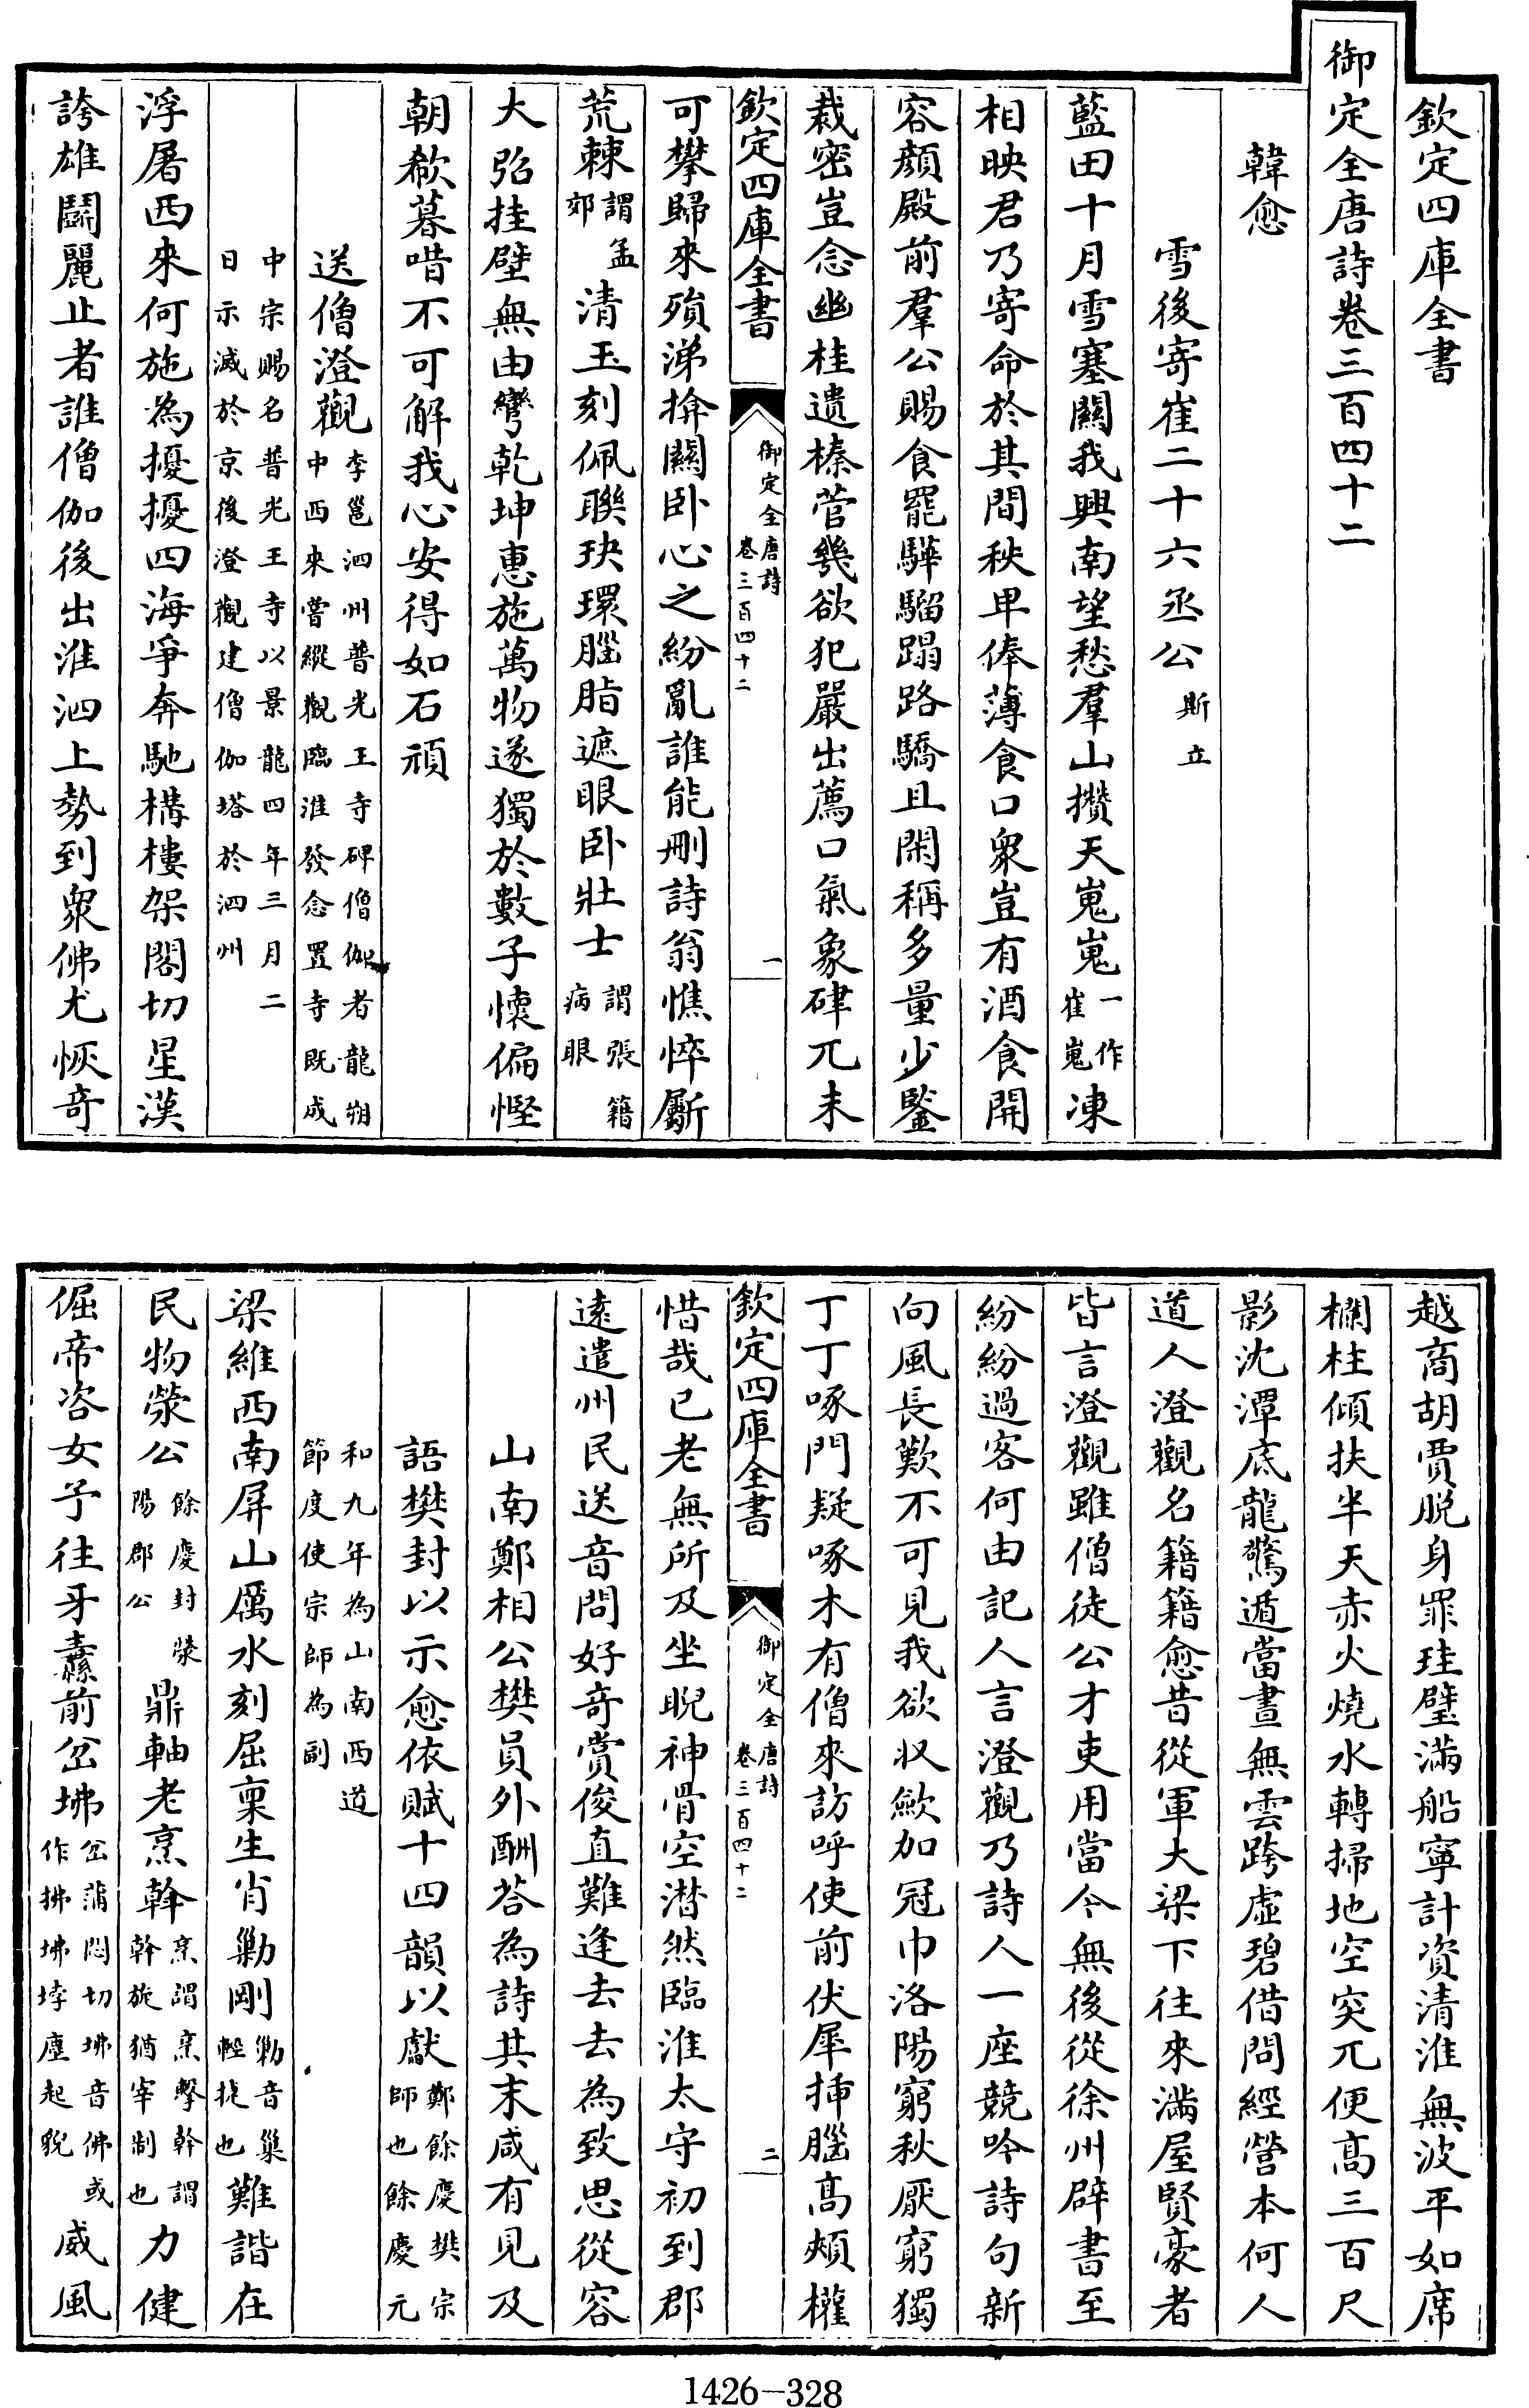 欽定四庫全書
御定全唐詩卷三百四十二
韓愈
雪後寄崔二十六丞公斯立
藍田十月雪塞關我興南望愁羣山攢天嵬嵬一作崔嵬凍
相映君乃寄命於其間秩卑俸薄食口衆豈有酒食開
容顔殿前羣公賜食罷驊騮蹋路驕且閑稱多量少鑒
裁密豈念幽桂遺榛菅幾欲犯嚴出薦口氣象硉兀未
欽定四庫全書
御定全唐詩
卷三百四十二
一
可攀歸來殞涕揜關卧心之紛亂誰能刪詩翁憔悴斸
荒棘謂孟郊清玉刻佩聯玦環腦脂遮眼卧壯士謂張籍病眼
大弨挂壁無由彎乾坤惠施萬物遂獨於數子懷偏慳
朝欷暮唶不可解我心安得如石頑
送僧澄觀李邕泗州普光王寺碑僧伽者龍朔中西來嘗縱觀臨淮發念置寺既成
中宗賜名普光王寺以景龍四年三月二日示滅於京後澄觀建僧伽塔於泗州
浮屠西來何施為擾擾四海爭奔馳構樓架閣切星漢
誇雄鬭麗止者誰僧伽後出淮泗上勢到衆佛尤恢奇
越商胡賈脱身罪珪璧滿船寧計資清淮無波平如席
欄柱傾扶半天赤火燒水轉掃地空突兀便高三百尺
影沈潭底龍驚遁當晝無雲跨虛碧借問經營本何人
道人澄觀名籍籍愈昔從軍大梁下往來滿屋賢豪者
皆言澄觀雖僧徒公才吏用當今無後從徐州辟書至
紛紛過客何由記人言澄觀乃詩人一座競吟詩句新
向風長歎不可見我欲收斂加冠巾洛陽窮秋厭窮獨
丁丁啄門疑啄木有僧來訪呼使前伏犀揷腦高頰權
欽定四庫全書
御定全唐詩
卷三百四十二
二
惜哉已老無所及坐睨神骨空潸然臨淮太守初到郡
遠遣州民送音問好奇賞俊直難逢去去為致思從容
山南鄭相公樊員外酬荅為詩其末咸有見及
語樊封以示愈依賦十四韻以獻鄭餘慶樊宗師也餘慶元
和九年為山南西道節度使宗師為副
梁維西南屏山厲水刻屈稟生肖勦剛勦音巢輕捷也難諧在
民物滎公餘慶封滎陽郡公鼎軸老烹斡烹謂烹擊斡謂斡旋猶宰制也力健
倔帝咨女予往牙纛前坌坲坌蒲悶切坲音佛或作拂坲埻塵起貌威風
1426-328